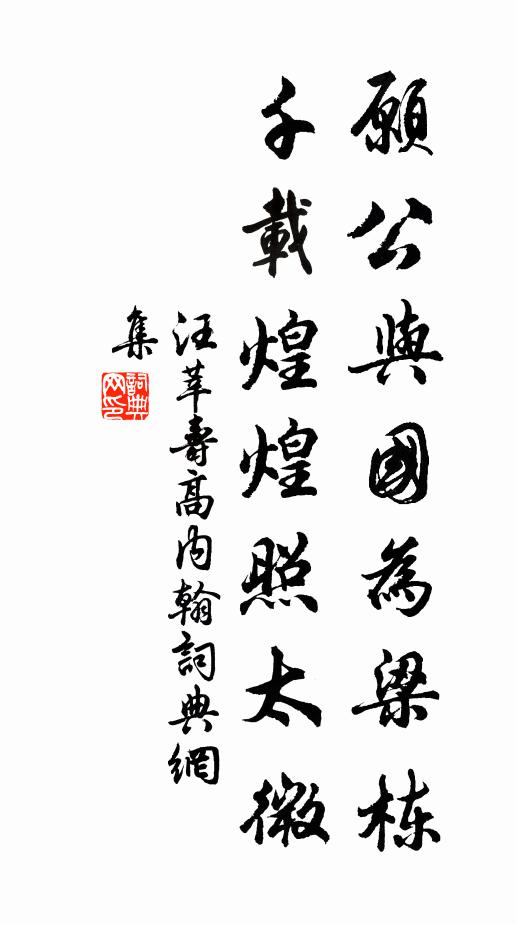 願公與國為梁栋
千載煌煌照太微
汪莘壽高内翰詞典網
集
詞典網印